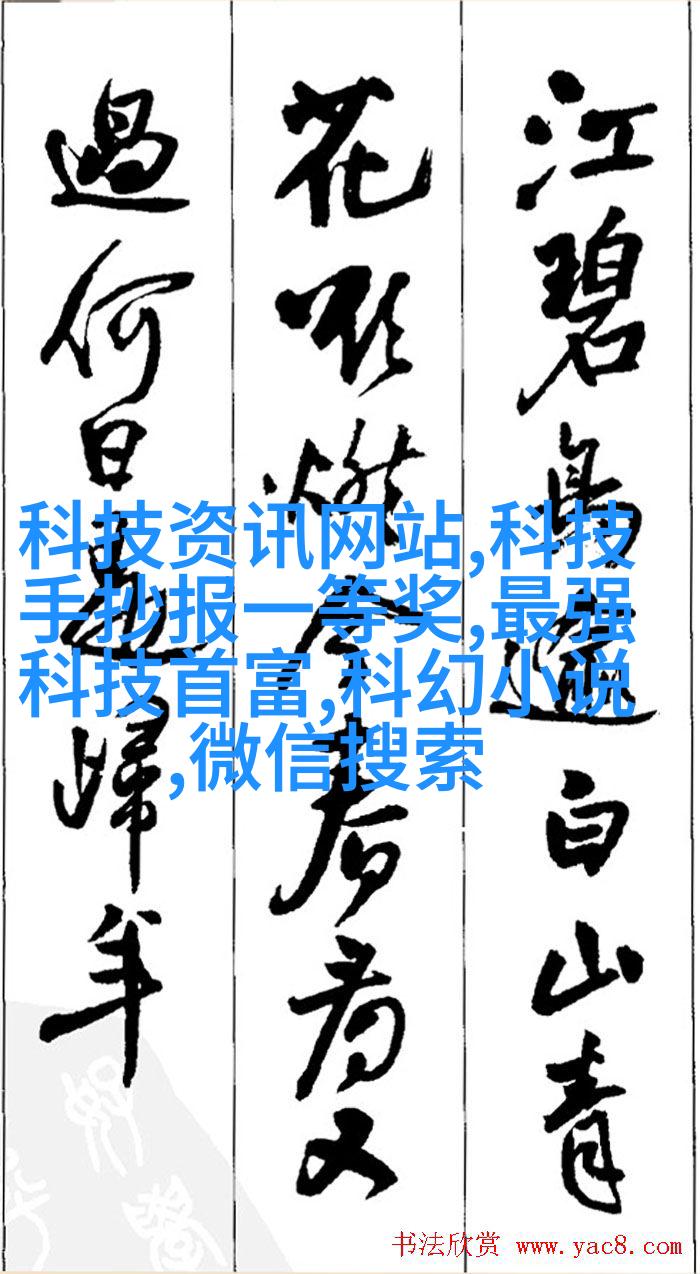 江碧鳥逾白山青
花欲燃今春看又
過何日是歸年
科技资讯网站,科技
手抄报一等奖,最强
科技首富,科幻小说
,微信搜索
书法欣赏 www.yac8.com